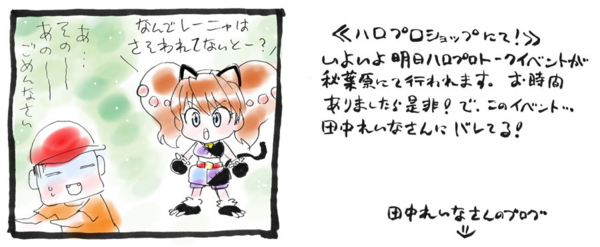 なんでレーニャは
さそわれてないとー？
あ…
そのー
あのー
ごめんなさい
≪ハロプロショップにて！≫
いよいよ明日ハロプロトークイベントが
秋葉原にて行われます。お時間
ありましたら是非！で、このイベント…
田中れいなさんにバレてる！
田中れいなさんのブログ